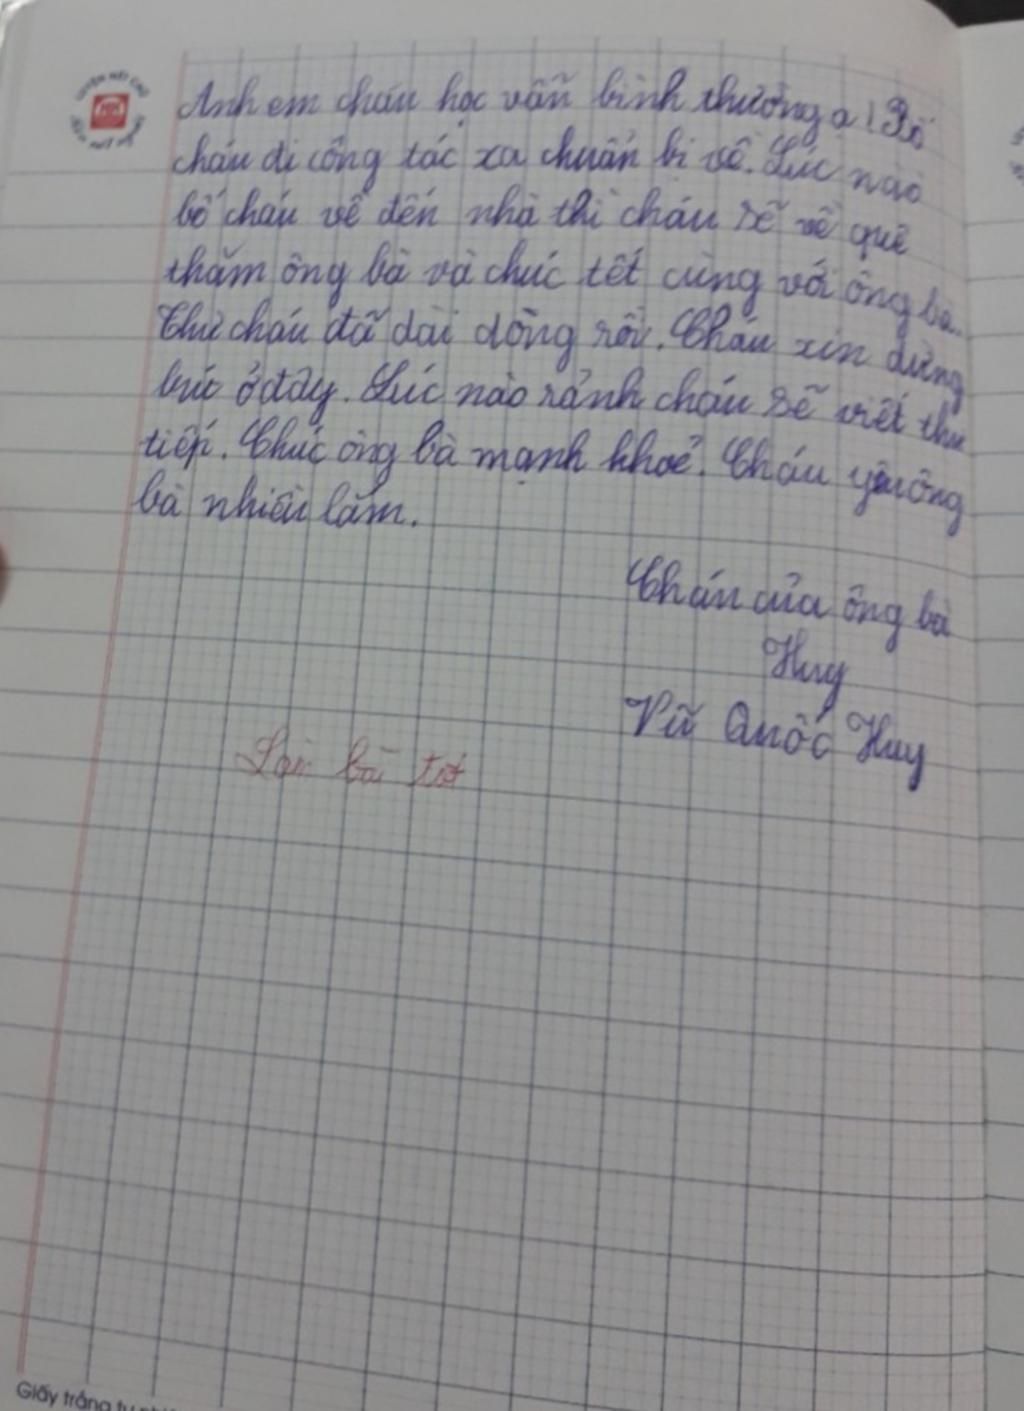 Anh em cháu học vẫn bình thường ạ! Bố
cháu đi công tác xa chuẩn bị về. Lúc nào
bố cháu về đến nhà thì cháu sẽ về quê
thăm ông bà và chúc tết cùng với ông bà.
Thư cháu đã dài dòng rồi. Cháu xin dừng
bút ở đây. Lúc nào rảnh cháu sẽ viết thư
tiếp. Chúc ông bà mạnh khoẻ. Cháu yêu ông
bà nhiều lắm.
Cháu của ông bà
Huy
Vũ Quốc Huy
Làm bài tốt
LUYỆN NÉT CHỮ
Giấy trắng tự nhiên